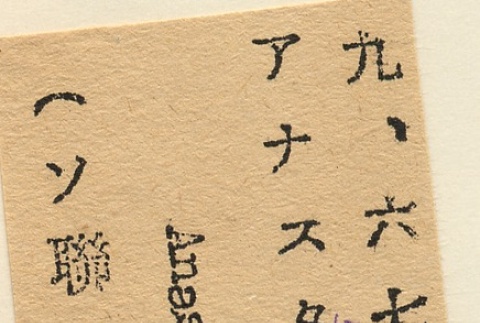 九、六
アナス
Anas
（ソ聯